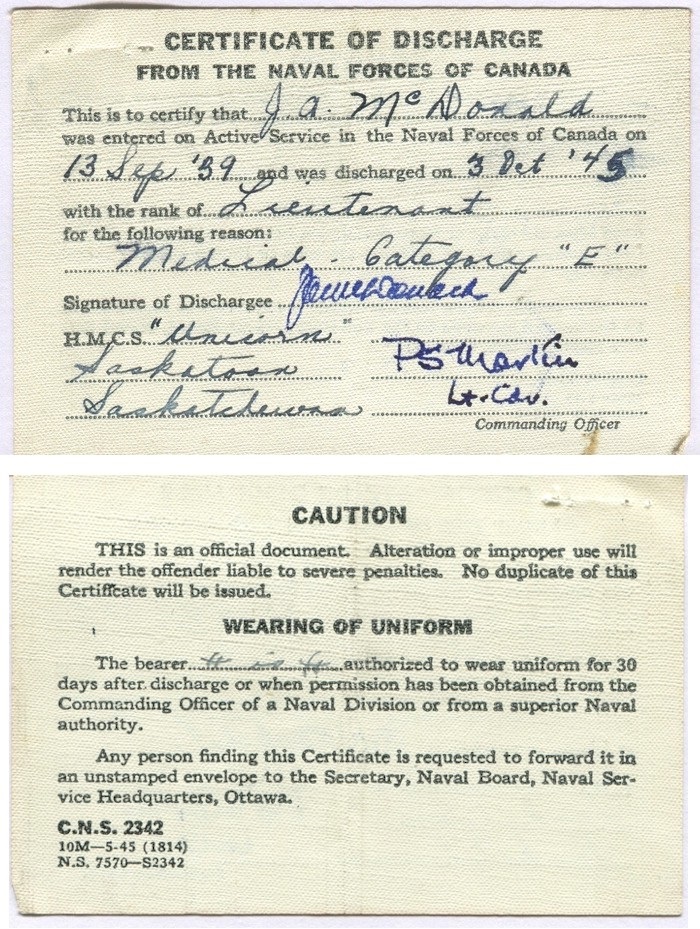 CERTIFICATE OF DISCHARGE
FROM THE NAVAL FORCES OF CANADA
This is to certify that J. A. McDonald
was entered on Active Service in the Naval Forces of Canada on
13 Sep '39 and was discharged on 3 Oct '45
with the rank of Lieutenant
for the following reason:
Medical - Category "E"
Signature of Dischargee
H.M.C.S. "Unicorn"
Saskatoon PS Martin
Saskatchewan Lt. Cdr.
Commanding Officer
CAUTION
THIS is an official document. Alteration or improper use will
render the offender liable to severe penalties. No duplicate of this
Certificate will be issued.
WEARING OF UNIFORM
The bearer " is " authorized to wear uniform for 30
days after discharge or when permission has been obtained from the
Commanding Officer of a Naval Division or from a superior Naval
authority.
Any person finding this Certificate is requested to forward it in
an unstamped envelope to the Secretary, Naval Board, Naval Ser-
vice Headquarters, Ottawa.
C.N.S. 2342
10M—5-45 (1814)
N.S. 7570—S2342